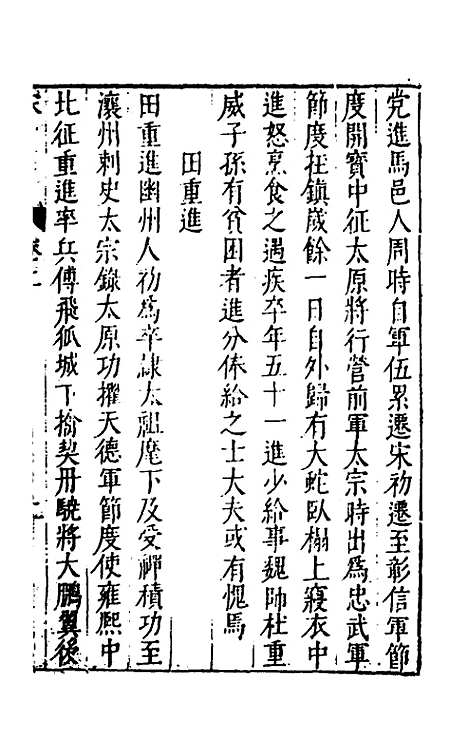 党進馬邑人周時自軍伍累遷宋初遷至彰信軍節
度開寶中征太原將行營前軍太宗時出爲忠武軍
節度在鎮歲餘一日自外歸有大蛇臥榻上寢衣中
進怒烹食之遇疾卒年五十一進少給事魏帥杜重
威子孫有貧困者進分俸給之士大夫或有愧焉
田重進
田重進幽州人初爲卒隸太祖麾下及受禪積功至
瀼州刺史太宗錄太原功擢天德軍節度使雍熙中
北征重進率兵傅飛狐城下擒契冊驍將大鵬翼後